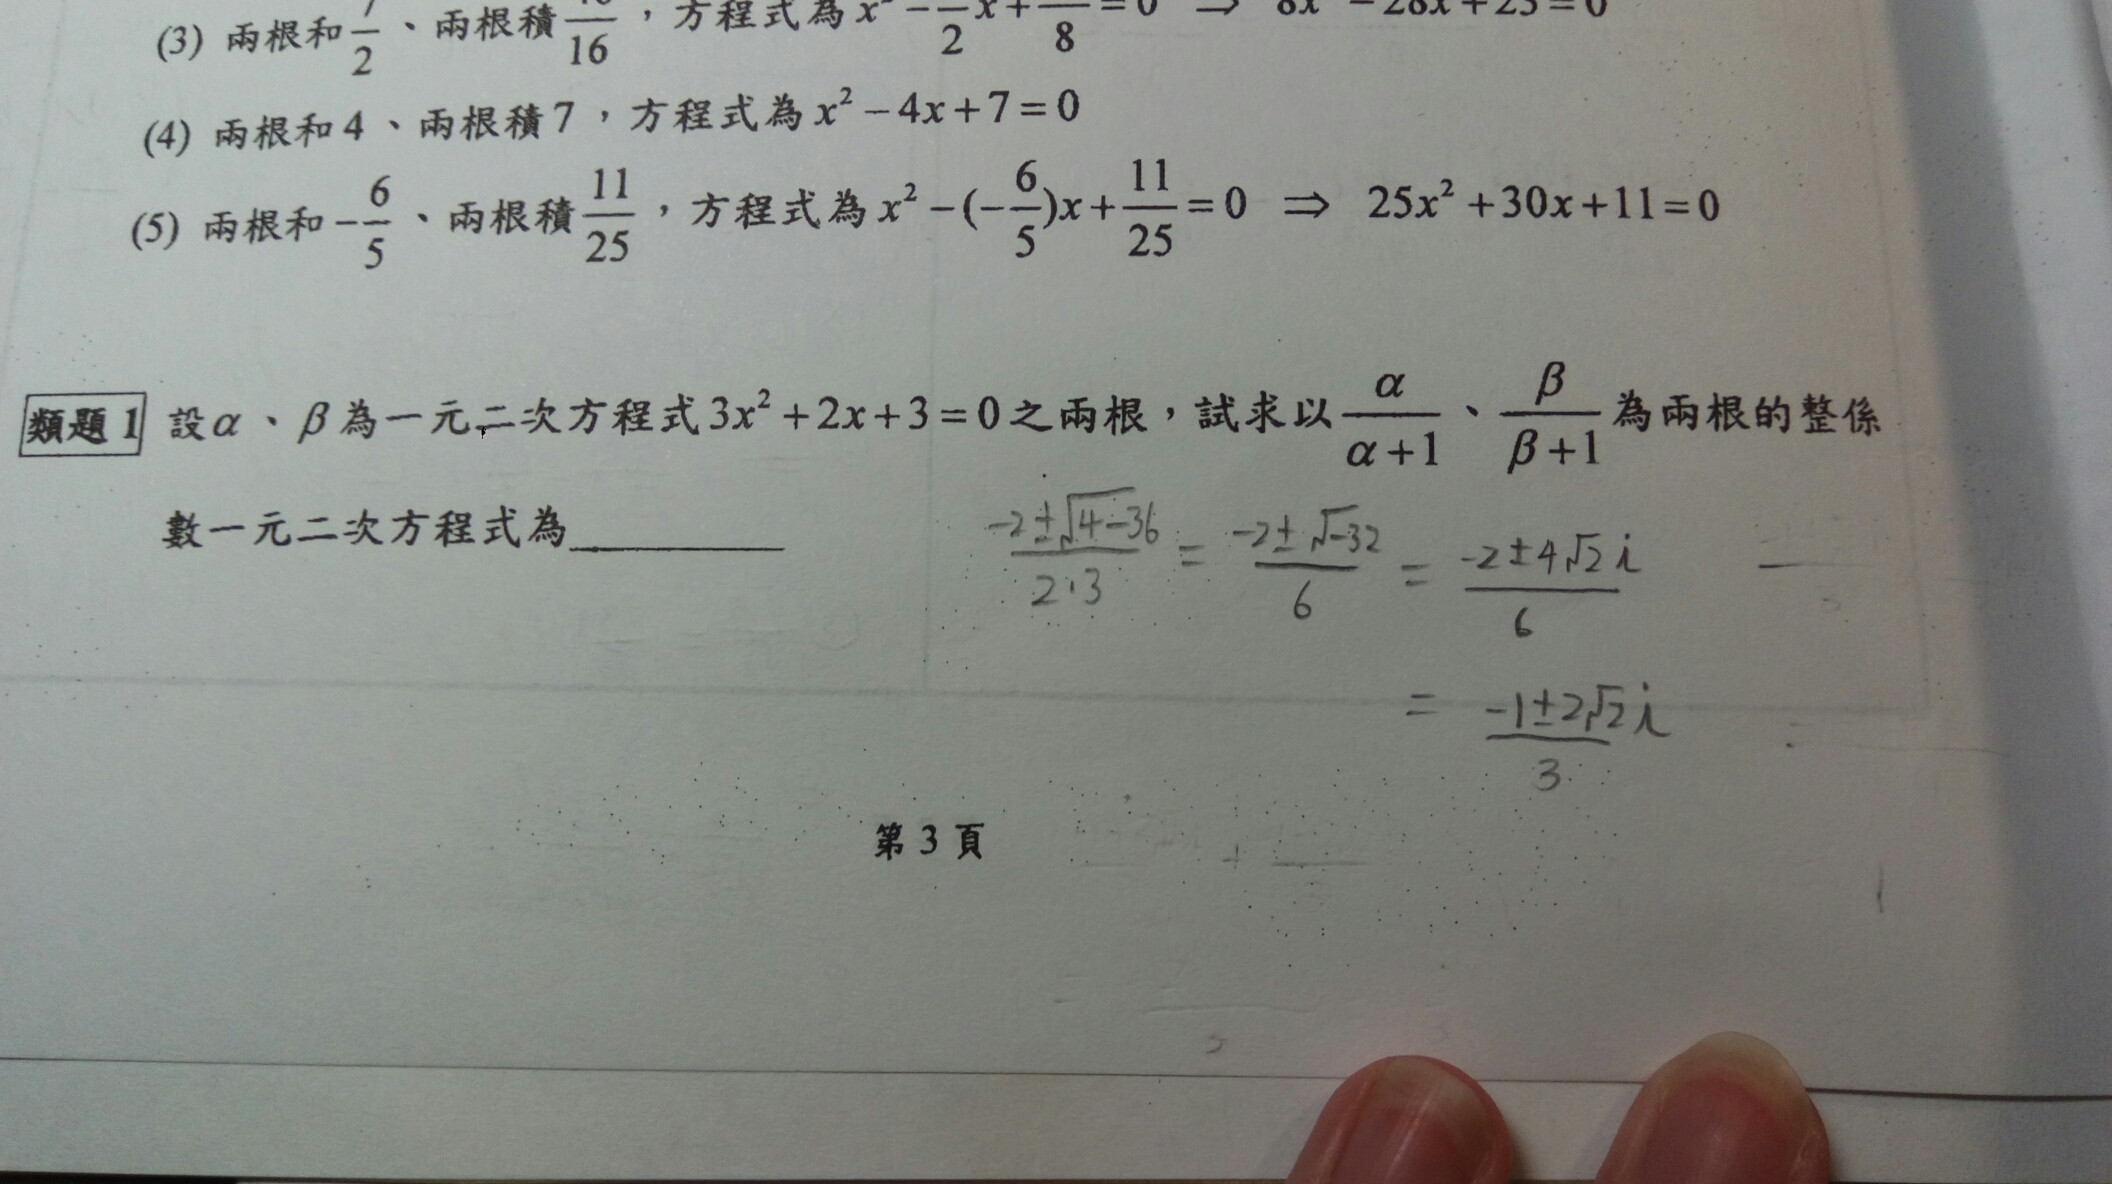 (3) 兩根和 7/2、兩根積 /16，方程式為 x² − /2 x + /8 = 0 ⇒ 8x² − 28x + 25 = 0
(4) 兩根和 4、兩根積 7，方程式為 x² − 4x + 7 = 0
(5) 兩根和 −6/5、兩根積 11/25，方程式為 x² − (−6/5)x + 11/25 = 0 ⇒ 25x² + 30x + 11 = 0
類題 1 設 α、β 為一元二次方程式 3x² + 2x + 3 = 0 之兩根，試求以 α/(α+1)、β/(β+1) 為兩根的整係
數一元二次方程式為__________
(-2±√(4-36))/(2·3) = (-2±√-32)/6 = (-2±4√2 i)/6
= (-1±2√2 i)/3
第 3 頁